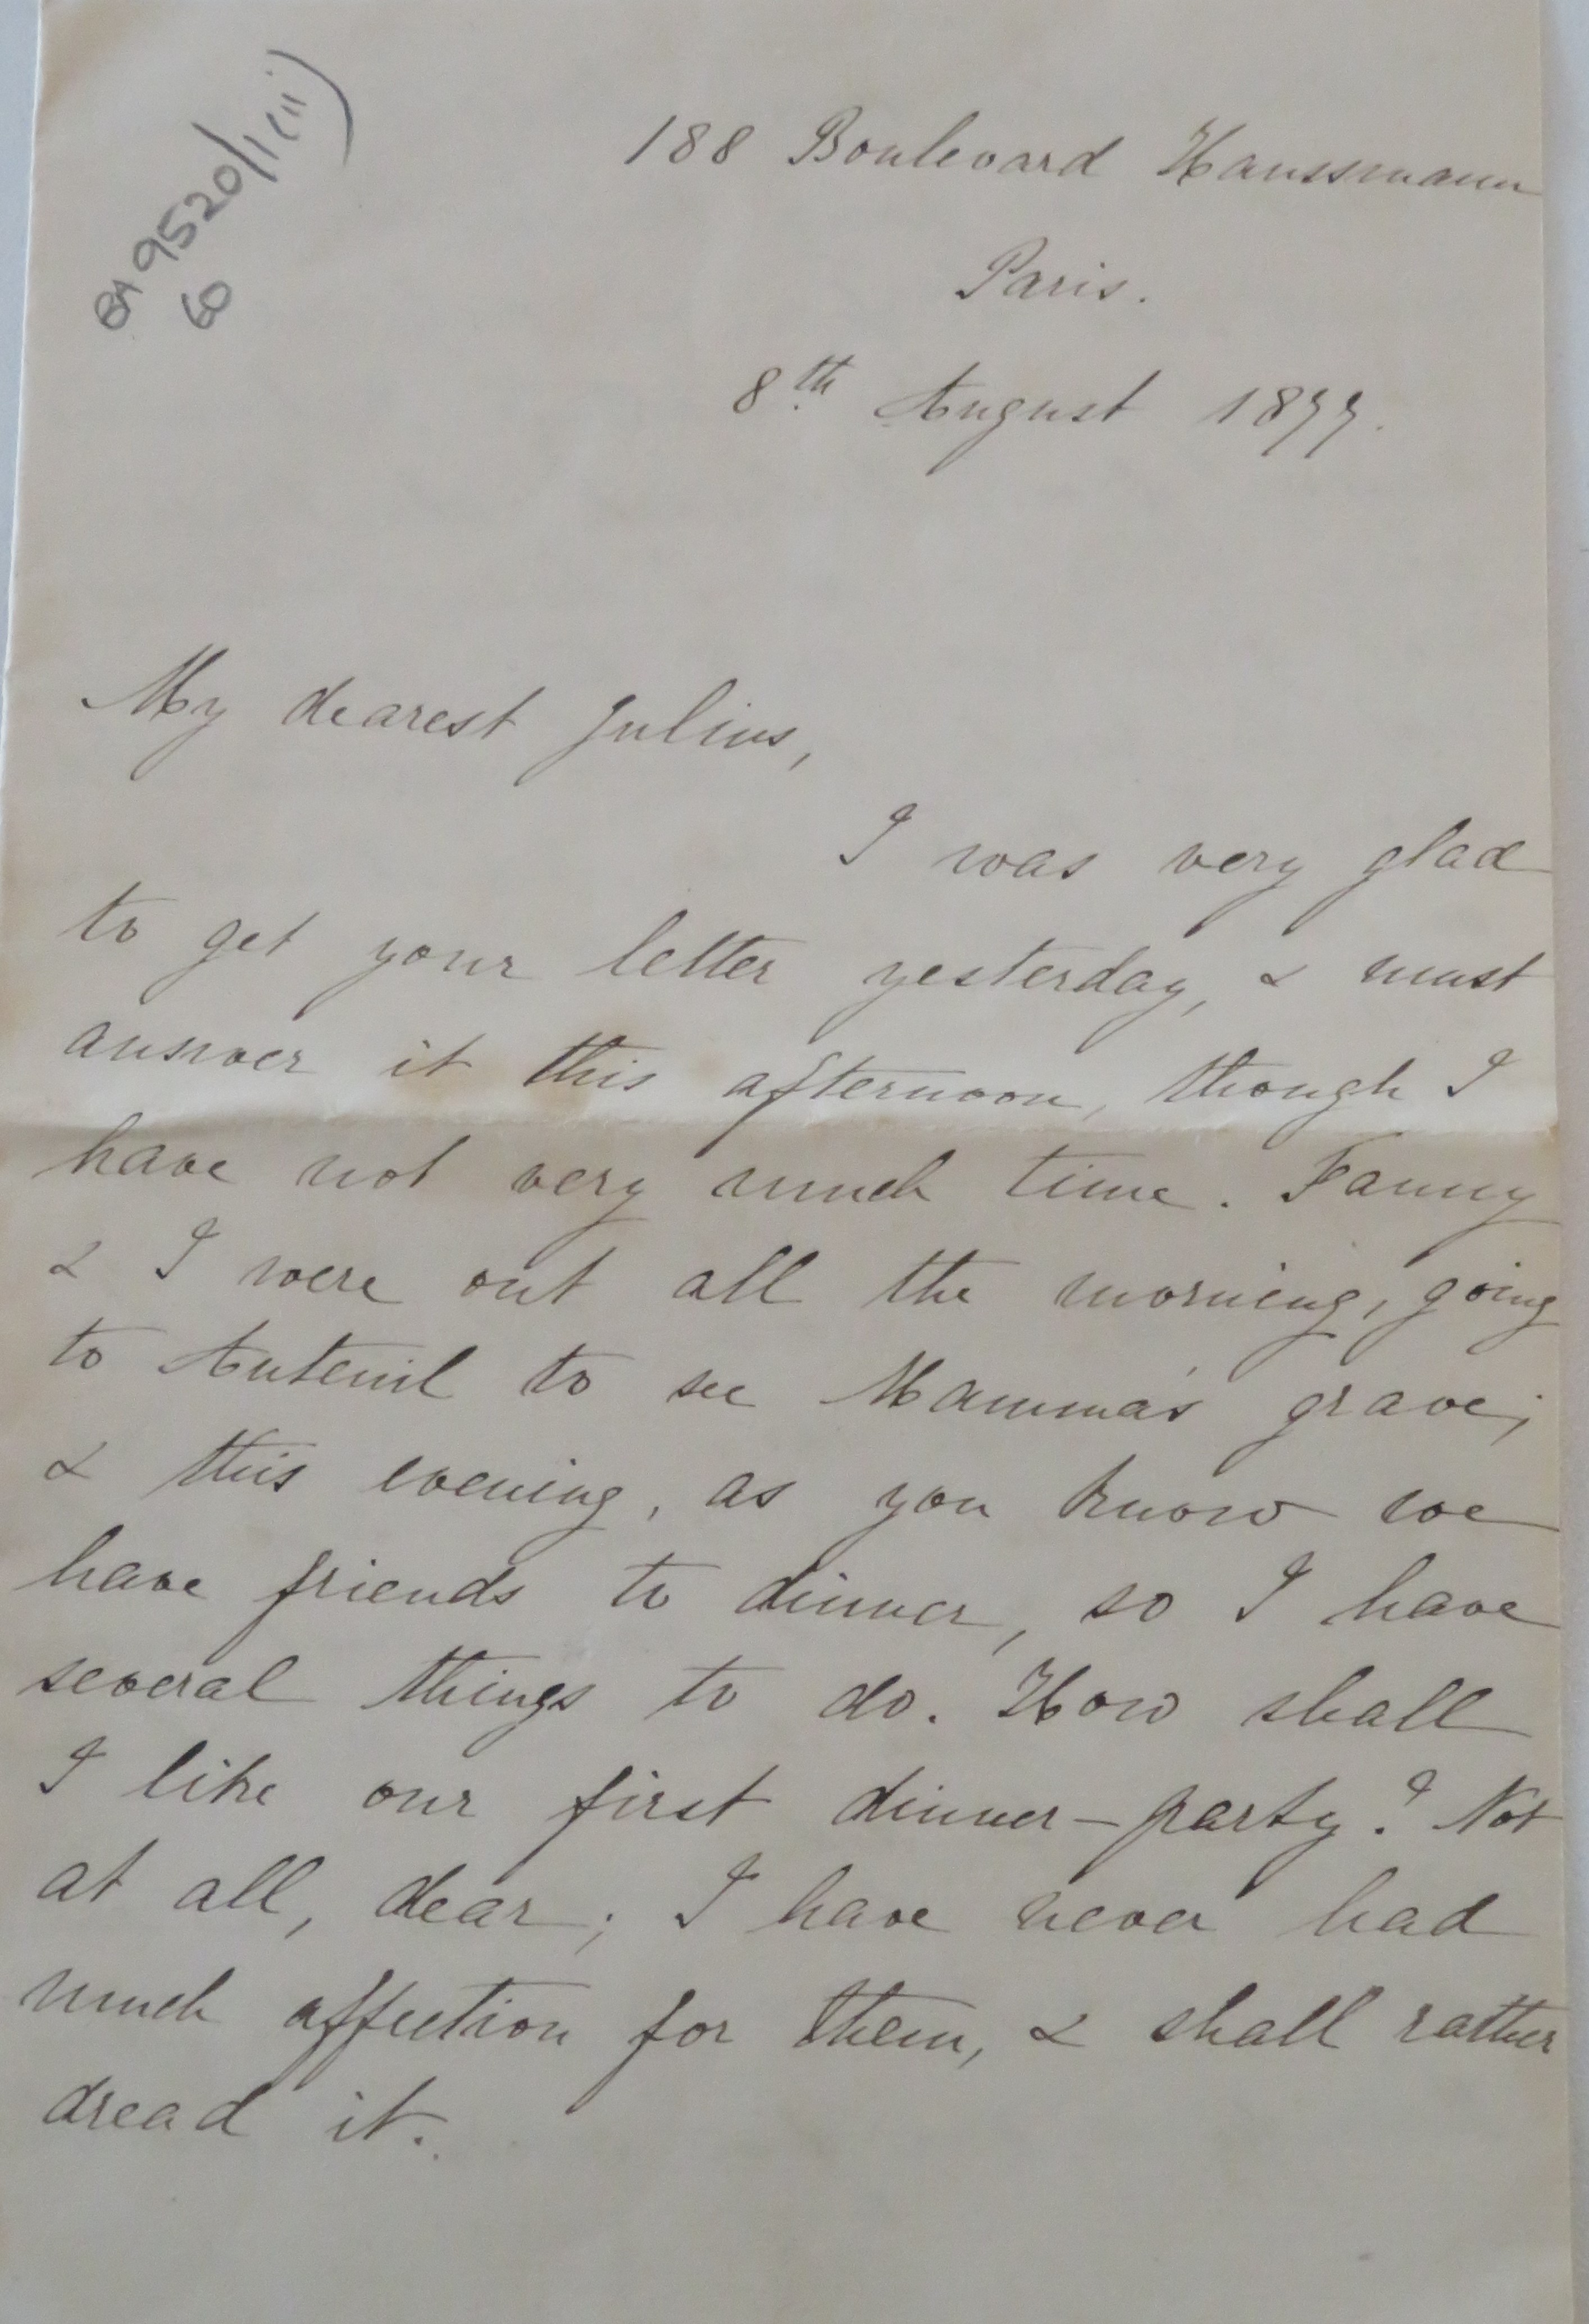 BA 9520/1(ii)
60
188 Boulevard Haussmann
Paris.
8th August 1877.
My dearest Julius,
I was very glad
to get your letter yesterday, & must
answer it this afternoon, though I
have not very much time. Fanny
& I were out all the morning, going
to Auteuil to see Mamma's grave;
& this evening, as you know we
have friends to dinner, so I have
several things to do. How shall
I like our first dinner-party? Not
at all, dear; I have never had
much affection for them, & shall rather
dread it.